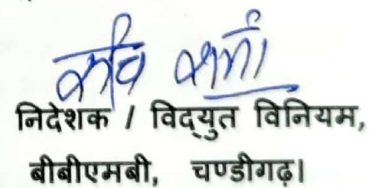 रवि शर्मा
निदेशक / विद्युत विनियम,
बीबीएमबी, चण्डीगढ़।